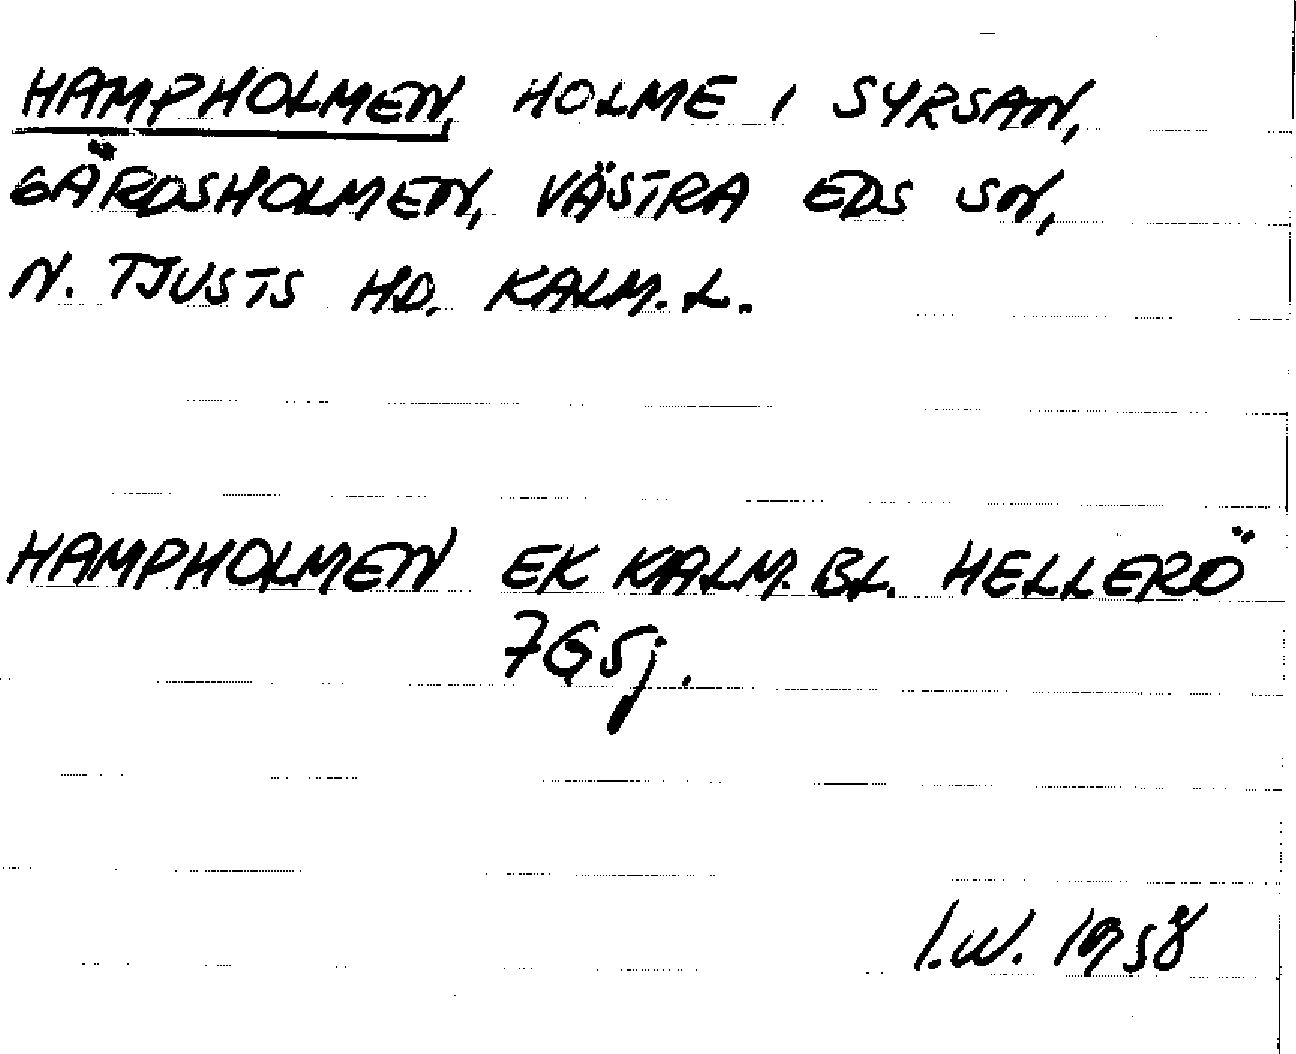 HAMPHOLMEN, HOLME I SYRSAN,
GÄRDSHOLMEN, VÄSTRA EDS SN,
N. TJUSTS HD. KALM. L.
HAMPHOLMEN EK KALM. BL. HELLERÖ
7G5j.
I.W. 1958